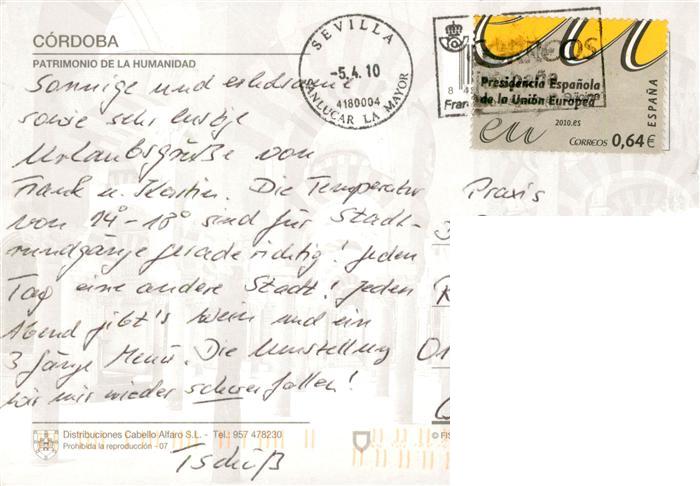 CÓRDOBA
PATRIMONIO DE LA HUMANIDAD
Sonnige und erholsame
sowie sehr lustige
Urlaubsgrüße von
Frank u. Martin. Die Temperatur
von 14° - 18° sind für Stadt-
rundgänge gerade richtig! Jeden
Tag eine andere Stadt! Jeden
Abend gibt's Wein und ein
3 gänge Menü. Die Umstellung
wir mir wieder schwer fallen!
Tschüß
SEVILLA
-5.4.10
4180004
SANLUCAR LA MAYOR
Fran
Presidencia Española
de la Unión Europea
eu 2010.es
CORREOS 0,64€
ESPAÑA
Praxis
Distribuciones Cabello Alfaro S.L. - Tel.: 957 478230
Prohibida la reproducción - 07
© FIS